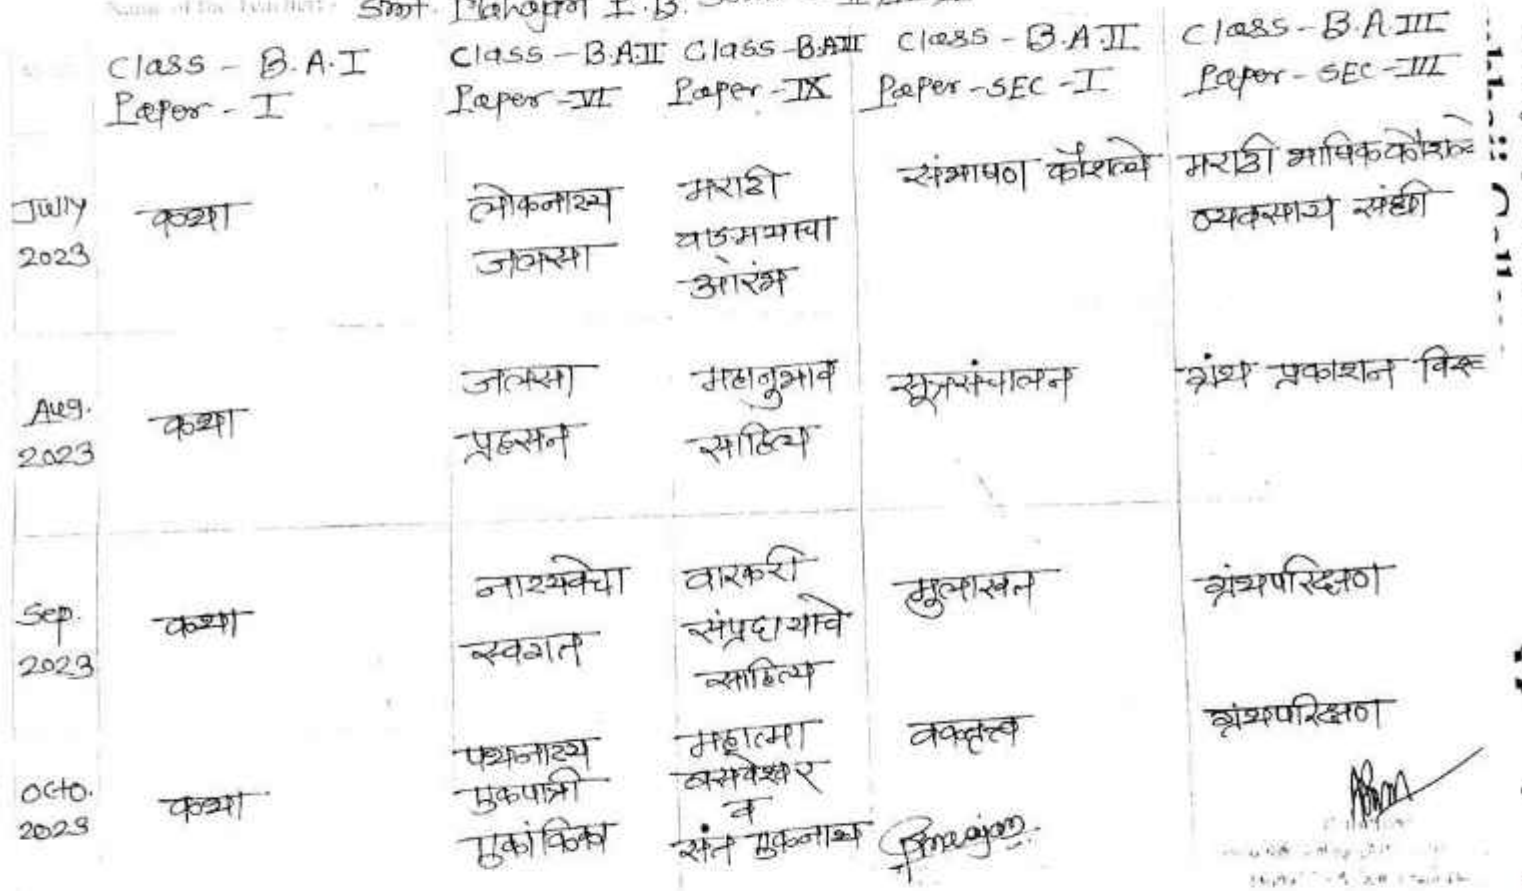 Name of the Teacher : Smt. Mahajan I. B.
Class - B.A.I Class - B.A.II Class - B.A.III Class - B.A.II Class - B.A.III
Paper - I Paper - VI Paper - IX Paper - SEC - I Paper - SEC - III
Jully 2023 कथा
लोकनाट्य
जलसा
मराठी
वाङमयाचा
आरंभ
संभाषण कौशल्ये
मराठी भाषिक कौशल्ये
व्यवसाय संधी
Aug. 2023 कथा
जलसा
प्रहसन
महानुभाव
साहित्य
सूत्रसंचालन
ग्रंथ प्रकाशन
Sep. 2023 कथा
नाट्यवेचा
स्वगत
वारकरी
संप्रदायाचे
साहित्य
मुलाखत
ग्रंथपरिक्षण
Octo. 2023 कथा
पथनाट्य
एकपात्री
एकांकिका
महात्मा
बसवेश्वर
व
संत एकनाथ
वक्तृत्व
ग्रंथपरिक्षण